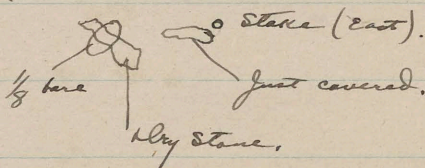 Stake (East).
1/8 bare
Just covered.
Dry Stone.